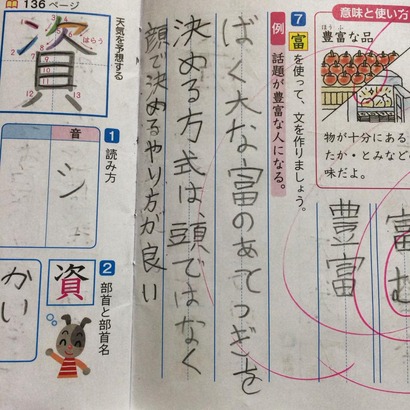 意味と使い方
豊富な品
ほうふ
物が十分にある
たか・とみなど
味だよ。
豊富
富む
7 富を使って、文を作りましょう。
例 話題が豊富な人になる。
ばく大な富のあてつぎを
決める方式は、頭ではなく
顔で決めるやり方が良い
136ページ
天気を予想する
資
はらう
1 読み方
音
シ
2 部首と部首名
資
かい